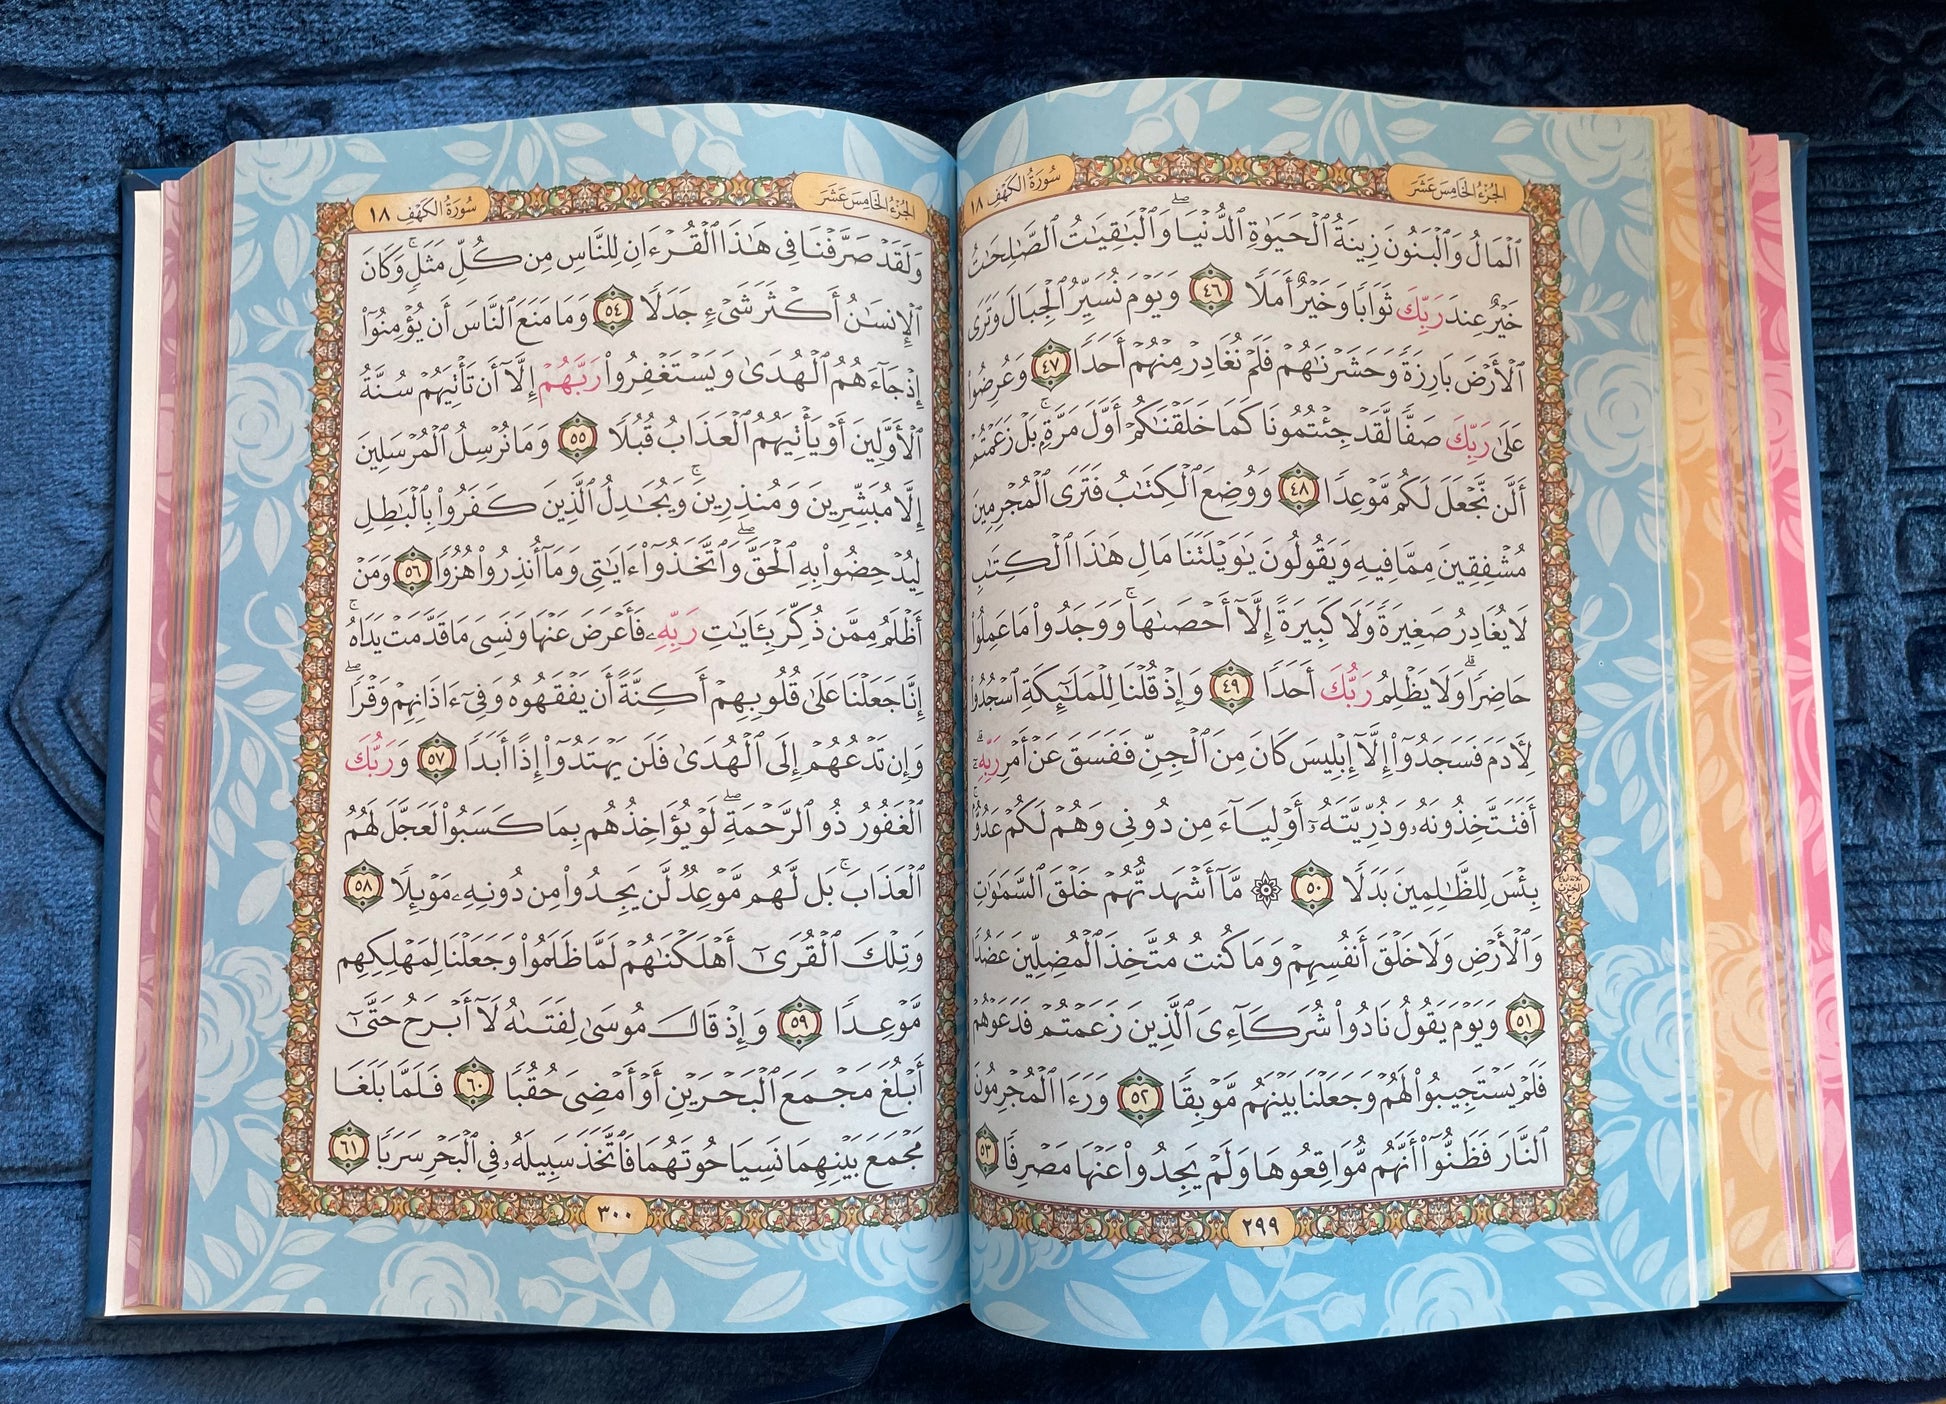 الجزء الخامس عشر
سورة الكهف ١٨
ٱلۡمَالُ وَٱلۡبَنُونَ زِينَةُ ٱلۡحَيَوٰةِ ٱلدُّنۡيَاۖ وَٱلۡبَٰقِيَٰتُ ٱلصَّٰلِحَٰتُ
خَيۡرٌ عِندَ رَبِّكَ ثَوَابٗا وَخَيۡرٌ أَمَلٗا ٤٦ وَيَوۡمَ نُسَيِّرُ ٱلۡجِبَالَ وَتَرَى
ٱلۡأَرۡضَ بَارِزَةٗ وَحَشَرۡنَٰهُمۡ فَلَمۡ نُغَادِرۡ مِنۡهُمۡ أَحَدٗا ٤٧ وَعُرِضُواْ
عَلَىٰ رَبِّكَ صَفّٗا لَّقَدۡ جِئۡتُمُونَا كَمَا خَلَقۡنَٰكُمۡ أَوَّلَ مَرَّةِۭۚ بَلۡ زَعَمۡتُمۡ
أَلَّن نَّجۡعَلَ لَكُم مَّوۡعِدٗا ٤٨ وَوُضِعَ ٱلۡكِتَٰبُ فَتَرَى ٱلۡمُجۡرِمِينَ
مُشۡفِقِينَ مِمَّا فِيهِ وَيَقُولُونَ يَٰوَيۡلَتَنَا مَالِ هَٰذَا ٱلۡكِتَٰبِ
لَا يُغَادِرُ صَغِيرَةٗ وَلَا كَبِيرَةً إِلَّآ أَحۡصَىٰهَاۚ وَوَجَدُواْ مَا عَمِلُواْ
حَاضِرٗاۗ وَلَا يَظۡلِمُ رَبُّكَ أَحَدٗا ٤٩ وَإِذۡ قُلۡنَا لِلۡمَلَٰٓئِكَةِ ٱسۡجُدُواْ
لِأٓدَمَ فَسَجَدُوٓاْ إِلَّآ إِبۡلِيسَ كَانَ مِنَ ٱلۡجِنِّ فَفَسَقَ عَنۡ أَمۡرِ رَبِّهِۦٓۗ
أَفَتَتَّخِذُونَهُۥ وَذُرِّيَّتَهُۥٓ أَوۡلِيَآءَ مِن دُونِي وَهُمۡ لَكُمۡ عَدُوُّۢۚ
بِئۡسَ لِلظَّٰلِمِينَ بَدَلٗا ٥٠ ۞ مَّآ أَشۡهَدتُّهُمۡ خَلۡقَ ٱلسَّمَٰوَٰتِ
وَٱلۡأَرۡضِ وَلَا خَلۡقَ أَنفُسِهِمۡ وَمَا كُنتُ مُتَّخِذَ ٱلۡمُضِلِّينَ عَضُدٗا
٥١ وَيَوۡمَ يَقُولُ نَادُواْ شُرَكَآءِيَ ٱلَّذِينَ زَعَمۡتُمۡ فَدَعَوۡهُمۡ
فَلَمۡ يَسۡتَجِيبُواْ لَهُمۡ وَجَعَلۡنَا بَيۡنَهُم مَّوۡبِقٗا ٥٢ وَرَءَا ٱلۡمُجۡرِمُونَ
ٱلنَّارَ فَظَنُّوٓاْ أَنَّهُم مُّوَاقِعُوهَا وَلَمۡ يَجِدُواْ عَنۡهَا مَصۡرِفٗا ٥٣
٢٩٩
الجزء الخامس عشر
سورة الكهف ١٨
وَلَقَدۡ صَرَّفۡنَا فِي هَٰذَا ٱلۡقُرۡءَانِ لِلنَّاسِ مِن كُلِّ مَثَلٖۚ وَكَانَ
ٱلۡإِنسَٰنُ أَكۡثَرَ شَيۡءٖ جَدَلٗا ٥٤ وَمَا مَنَعَ ٱلنَّاسَ أَن يُؤۡمِنُوٓاْ
إِذۡ جَآءَهُمُ ٱلۡهُدَىٰ وَيَسۡتَغۡفِرُواْ رَبَّهُمۡ إِلَّآ أَن تَأۡتِيَهُمۡ سُنَّةُ
ٱلۡأَوَّلِينَ أَوۡ يَأۡتِيَهُمُ ٱلۡعَذَابُ قُبُلٗا ٥٥ وَمَا نُرۡسِلُ ٱلۡمُرۡسَلِينَ
إِلَّا مُبَشِّرِينَ وَمُنذِرِينَۚ وَيُجَٰدِلُ ٱلَّذِينَ كَفَرُواْ بِٱلۡبَٰطِلِ
لِيُدۡحِضُواْ بِهِ ٱلۡحَقَّۖ وَٱتَّخَذُوٓاْ ءَايَٰتِي وَمَآ أُنذِرُواْ هُزُوٗا ٥٦ وَمَنۡ
أَظۡلَمُ مِمَّن ذُكِّرَ بِـَٔايَٰتِ رَبِّهِۦ فَأَعۡرَضَ عَنۡهَا وَنَسِيَ مَا قَدَّمَتۡ يَدَاهُۚ
إِنَّا جَعَلۡنَا عَلَىٰ قُلُوبِهِمۡ أَكِنَّةً أَن يَفۡقَهُوهُ وَفِيٓ ءَاذَانِهِمۡ وَقۡرٗاۖ
وَإِن تَدۡعُهُمۡ إِلَى ٱلۡهُدَىٰ فَلَن يَهۡتَدُوٓاْ إِذًا أَبَدٗا ٥٧ وَرَبُّكَ
ٱلۡغَفُورُ ذُو ٱلرَّحۡمَةِۖ لَوۡ يُؤَاخِذُهُم بِمَا كَسَبُواْ لَعَجَّلَ لَهُمُ
ٱلۡعَذَابَۚ بَل لَّهُم مَّوۡعِدٌ لَّن يَجِدُواْ مِن دُونِهِۦ مَوۡئِلٗا ٥٨
وَتِلۡكَ ٱلۡقُرَىٰٓ أَهۡلَكۡنَٰهُمۡ لَمَّا ظَلَمُواْ وَجَعَلۡنَا لِمَهۡلِكِهِم
مَّوۡعِدٗا ٥٩ وَإِذۡ قَالَ مُوسَىٰ لِفَتَىٰهُ لَآ أَبۡرَحُ حَتَّىٰٓ
أَبۡلُغَ مَجۡمَعَ ٱلۡبَحۡرَيۡنِ أَوۡ أَمۡضِيَ حُقُبٗا ٦٠ فَلَمَّا بَلَغَا
مَجۡمَعَ بَيۡنِهِمَا نَسِيَا حُوتَهُمَا فَٱتَّخَذَ سَبِيلَهُۥ فِي ٱلۡبَحۡرِ سَرَبٗا ٦١
٣٠٠